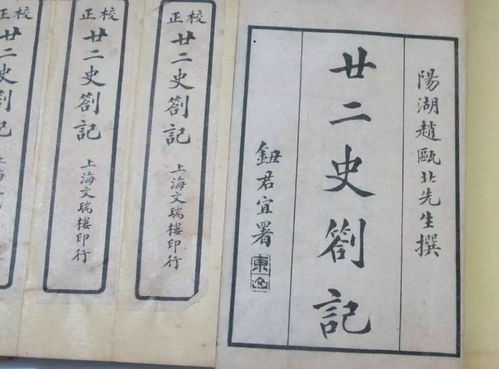 陽湖趙甌北先生撰
廿二史劄記
鈕君宜署
校正
廿二史劄記
上海文瑞樓印行
校正
廿二史劄記
上海文瑞樓印行
正
廿二史劄記
上海文